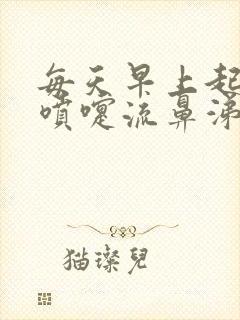 每天早上起
噴嚏流鼻涕
猫璨兒